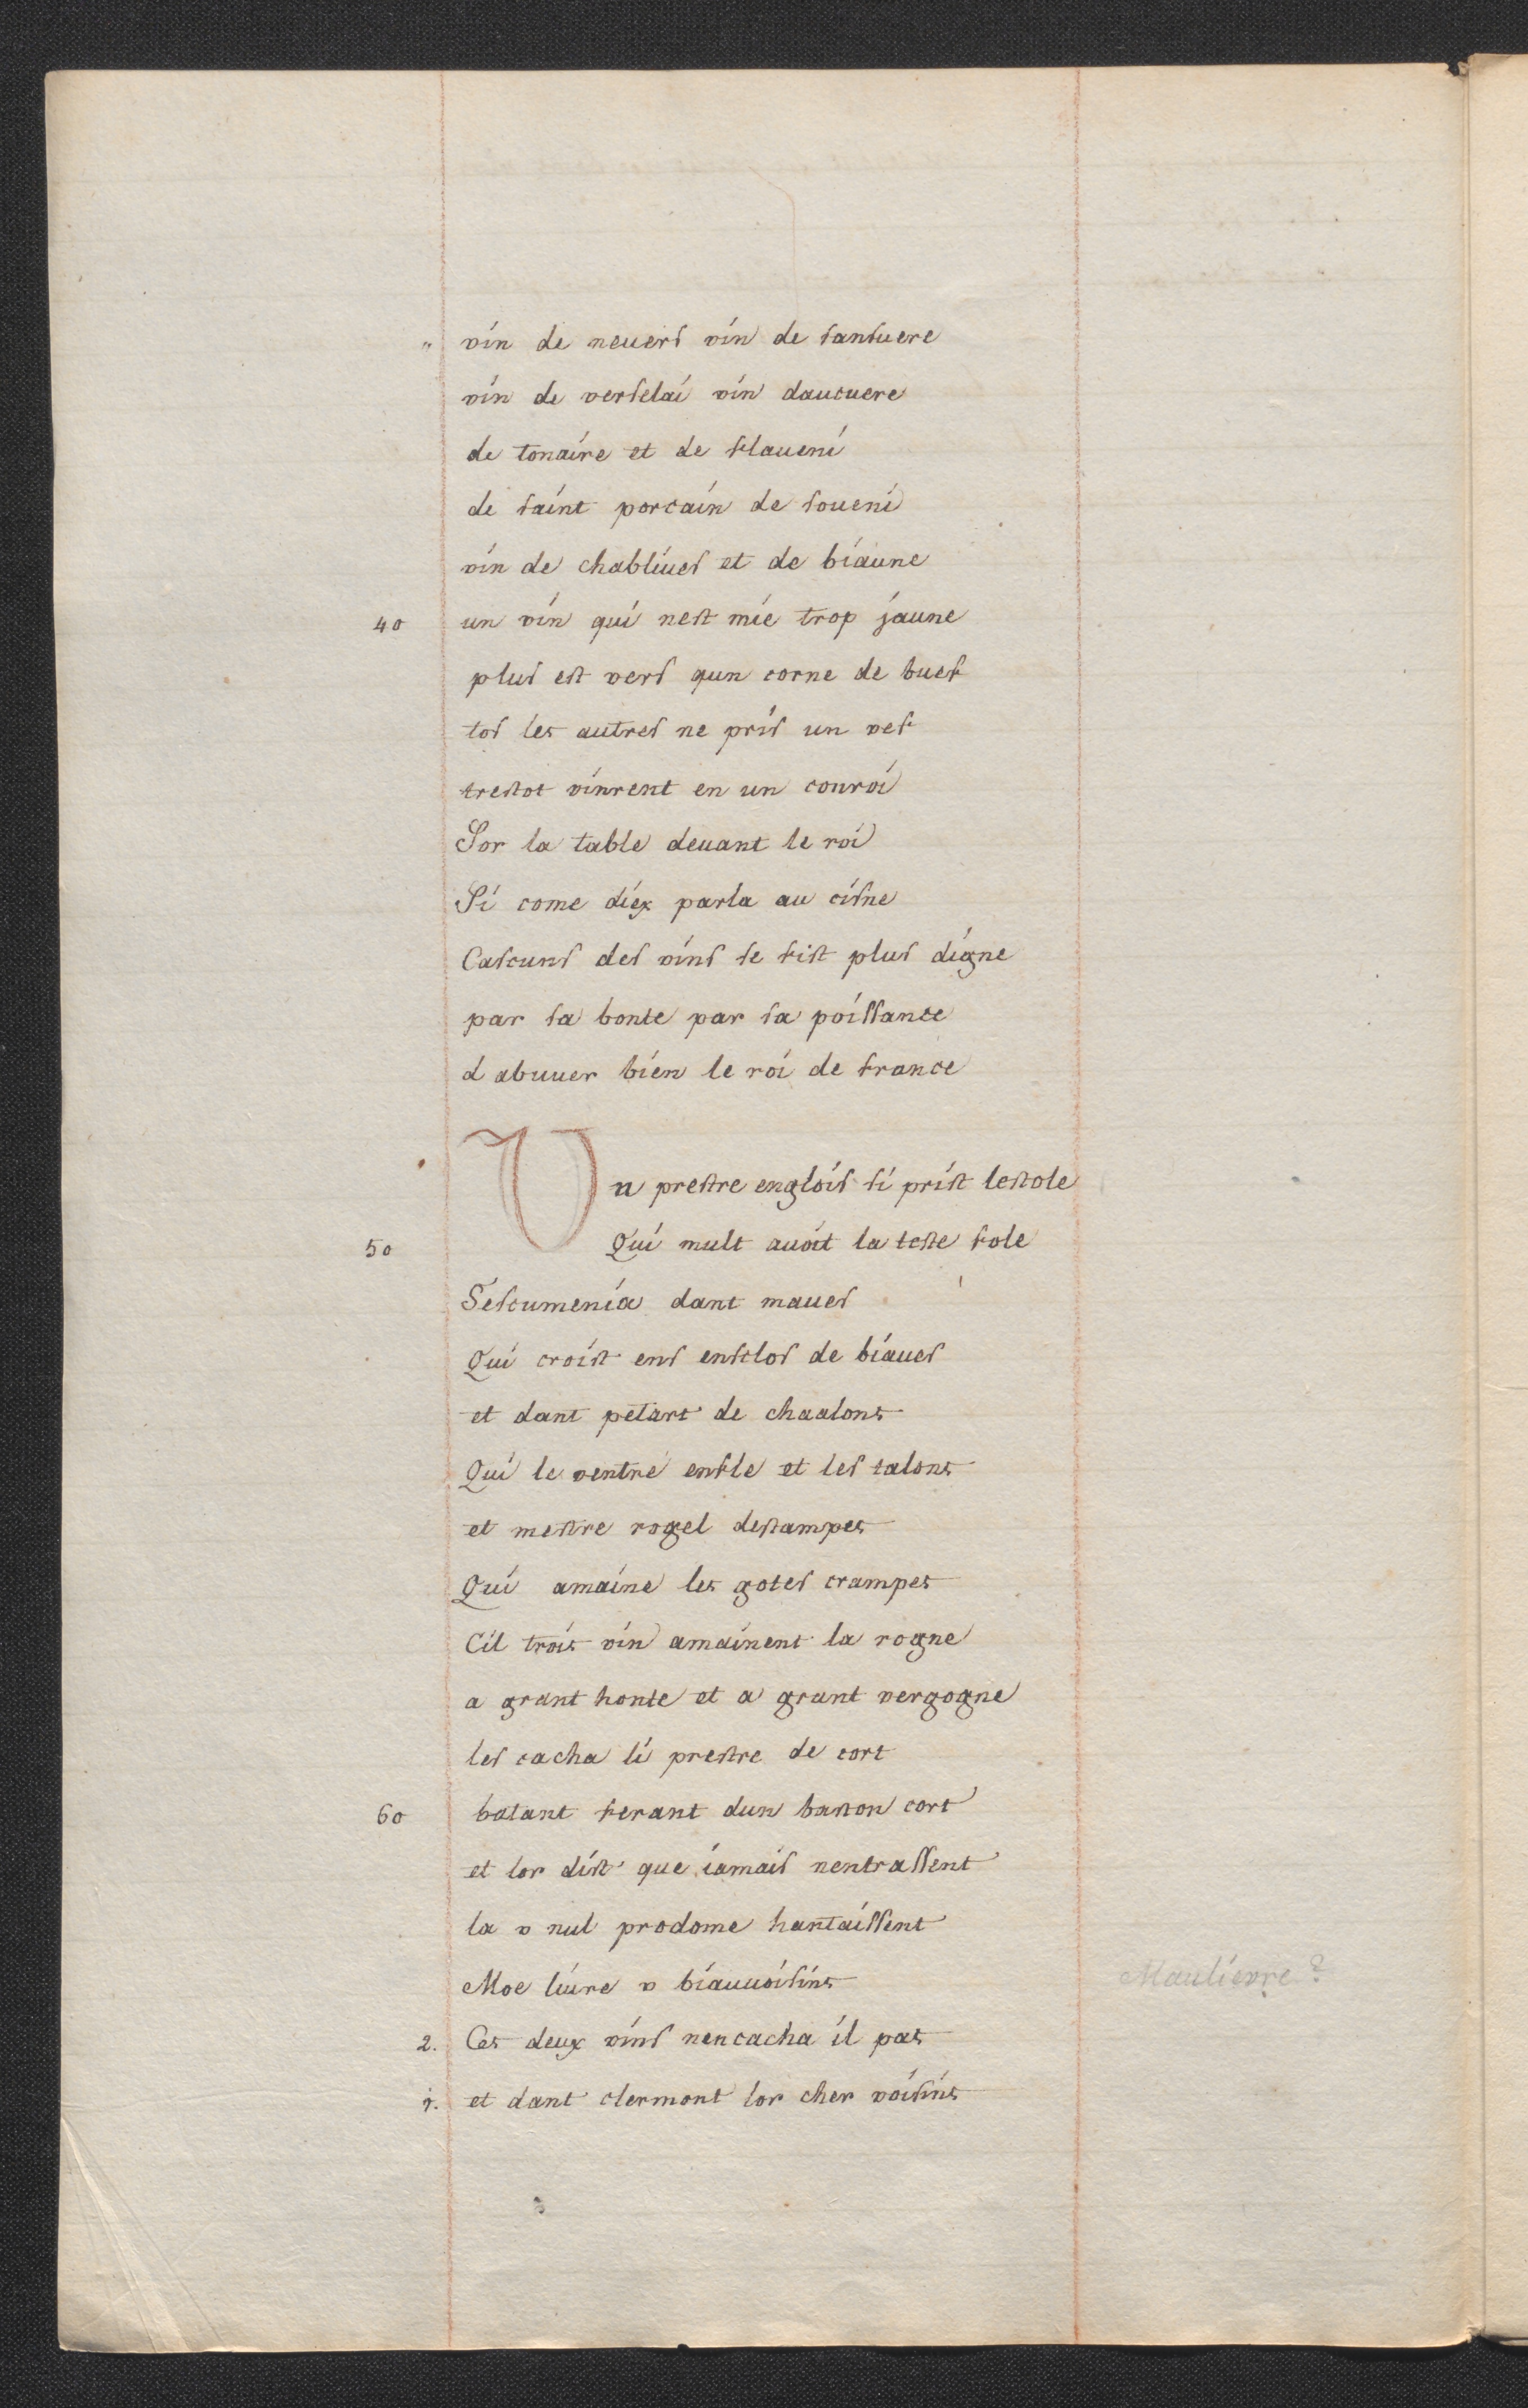 " vin de neuerſ vin de ſanſuere
vin de verſelai vin daucuere
de tonaire et de flaueni
de ſaint porcain de ſoueni
vin de chabliueſ et de biaune
40 un vin qui neſt mie trop jaune
pluſ eſt verſ qun corne de buef
toſ les autreſ ne priſ un oef
treſtot vinrent en un conroi
Sor la table deuant le roi
Si come diex parla au ciſne
Caſcunſ deſ vinſ ſe fiſt pluſ digne
par ſa bonte par ſa poiſſance
d abuuer bien le roi de france
Un preſtre engloiſ ſi priſt leſtole
50 Qui mult auoit la teſte fole
Seſcumenia dant maueſ
Qui croiſt enſ enſcloſ de biaueſ
et dant petart de chaalons
Qui le ventre enfle et leſ talons
et meſtre rogel deſtampes
Qui amaine les goteſ crampes
Cil trois vin amainent la rogne
a grant honte et a grant vergogne
leſ cacha li preſtre de cort
60 batant ferant dun baſton cort
et lor diſt que iamaiſ nentraſſent
la v nul prodome hantaiſſent
Moe liure v biauuoiſins
Maulievre ?
2. Ces deux vinſ nencacha il pas
1. et dant clermont lor cher voiſins